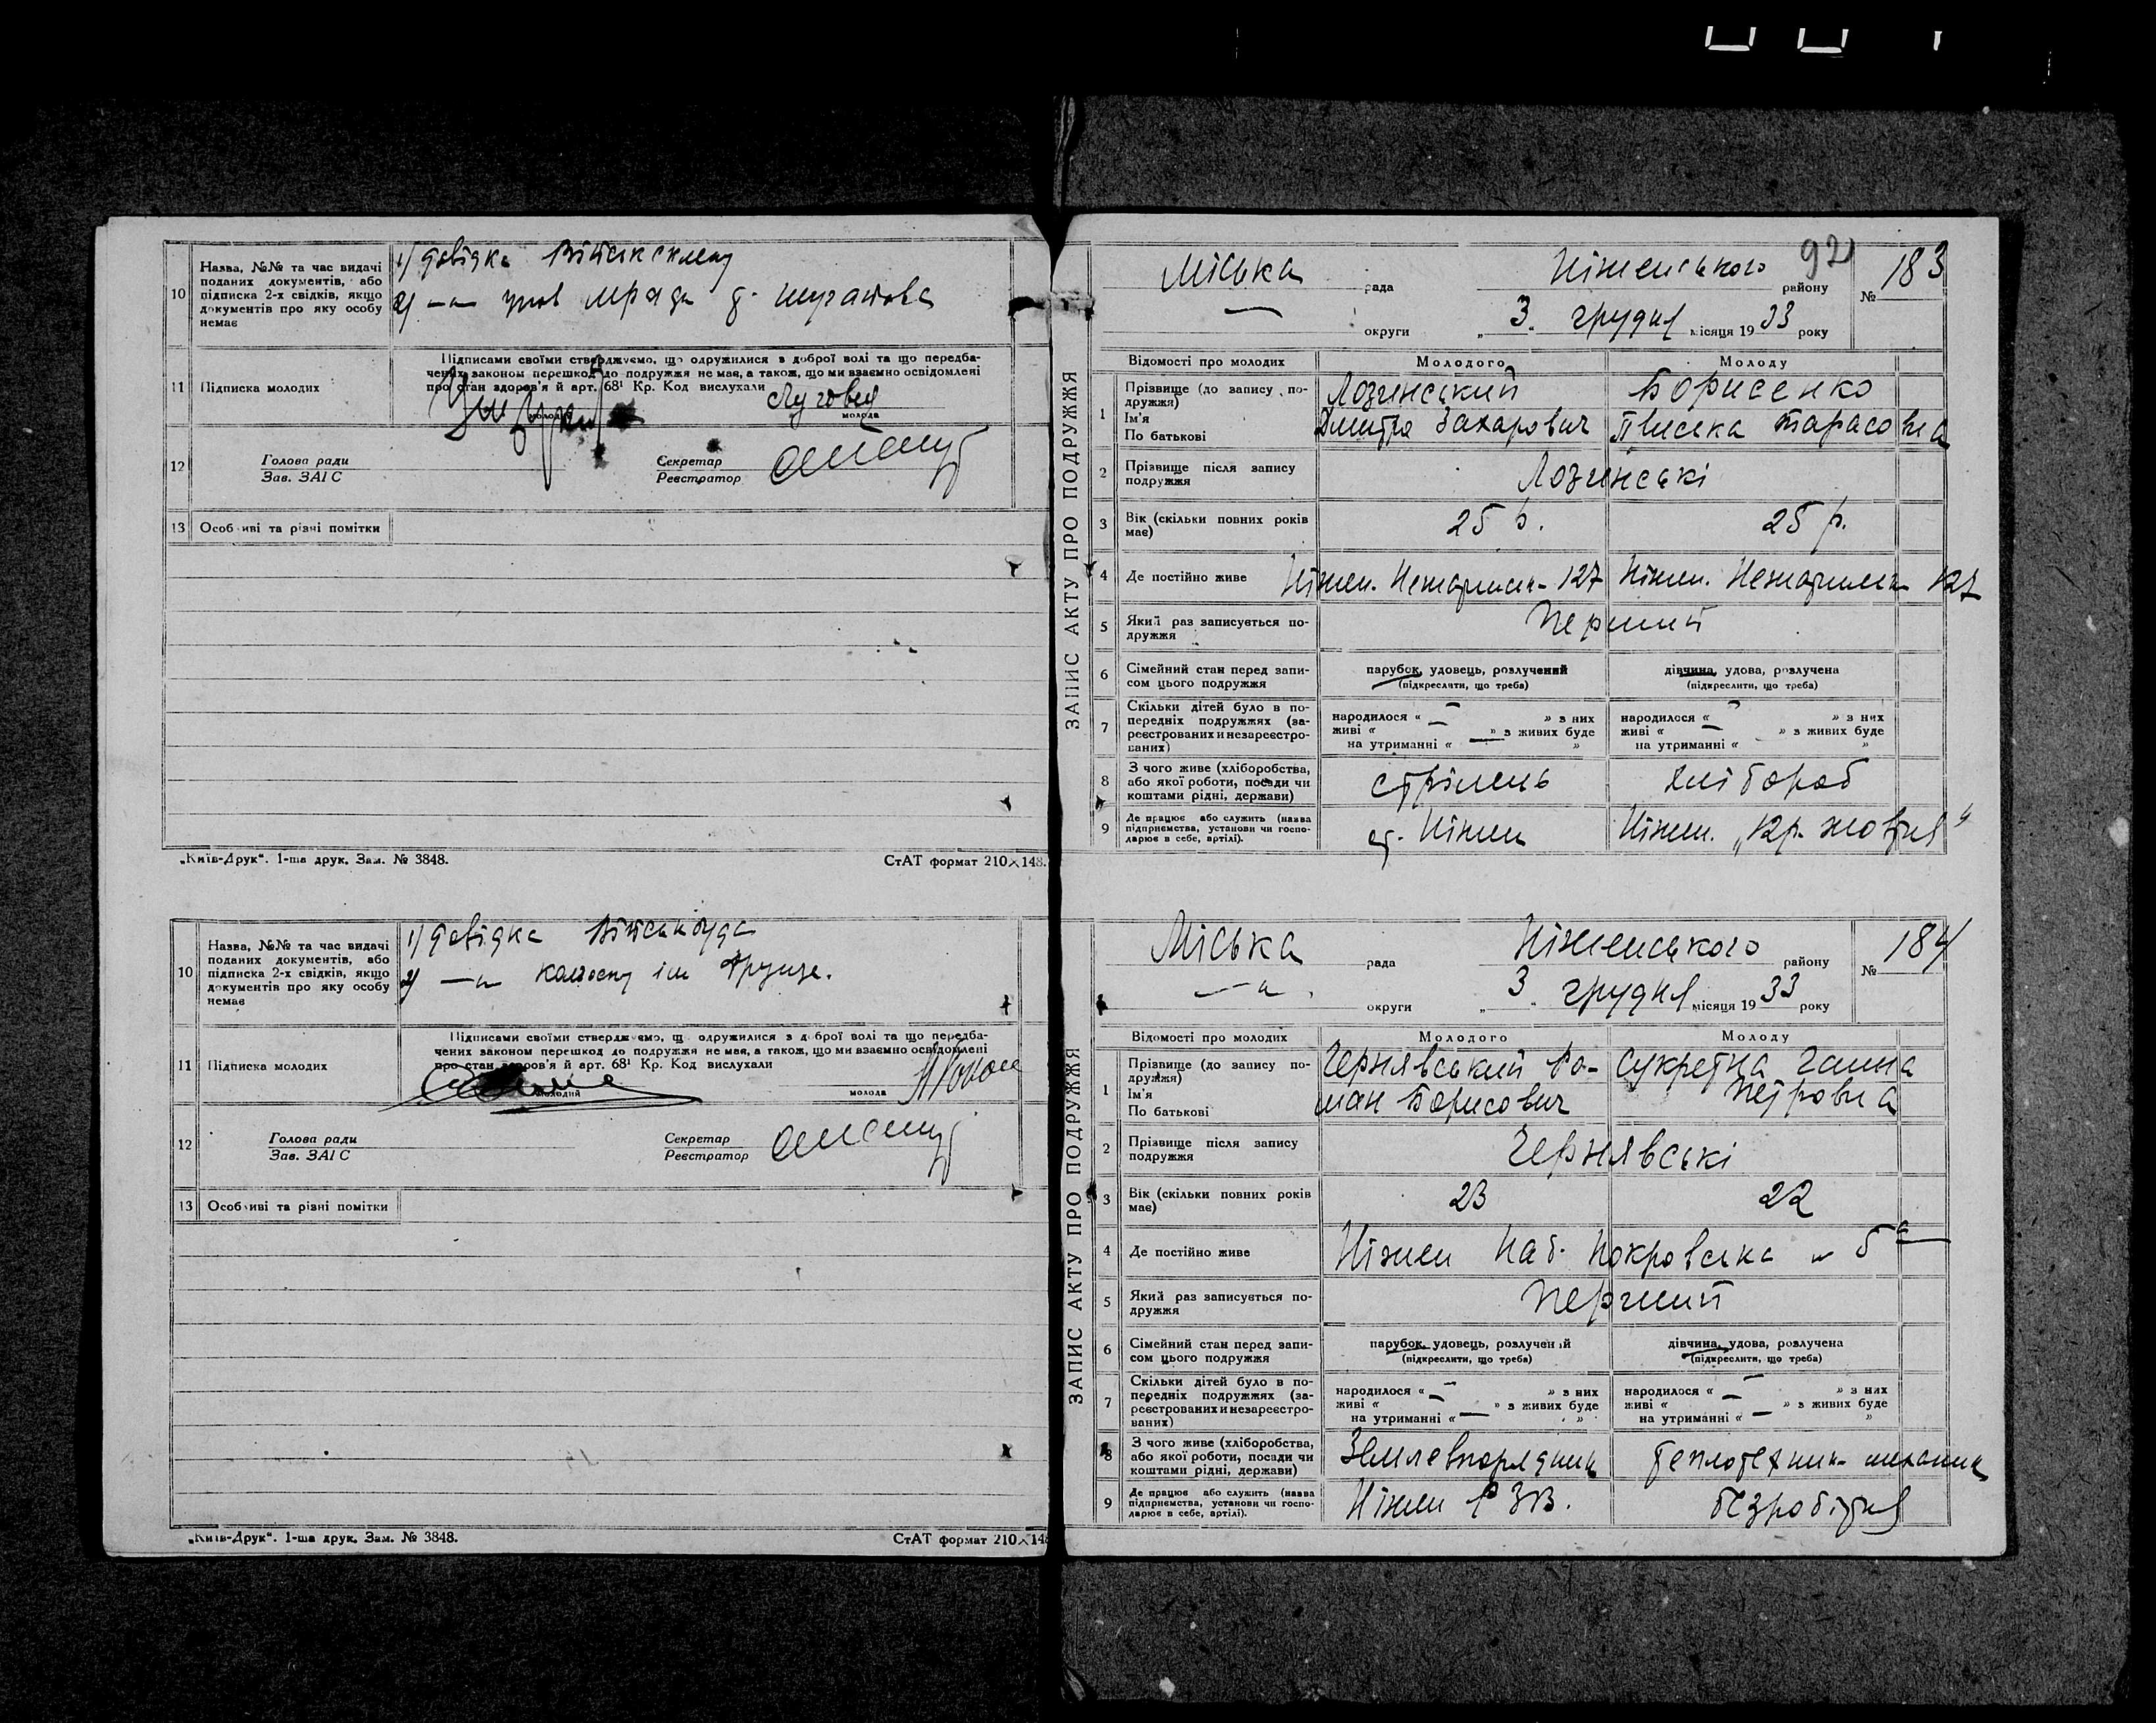 10
Назва, №№ та час видачі
поданих документів, або
підписка 2-х свідків, якщо
документів про яку особу
немає
1) довідка
2) —„—
11
Підписка молодих
Підписами своїми стверджуємо, що одружилися з доброї волі та що передба-
чених законом перешкод до подружжя не має, а також, що ми взаємно освідомлені
про стан здоров'я й арт. 68¹ Кр. Код вислухали
Лугова
молодий
молода
12
Голова ради
Зав. ЗАГС
Секретар
Реєстратор
13
Особливі та різні помітки
„Київ-Друк“. 1-ша друк. Зам. № 3848.
СтАТ формат 210×148.
10
Назва, №№ та час видачі
поданих документів, або
підписка 2-х свідків, якщо
документів про яку особу
немає
1) довідка
2) —„— колгоспу ім Фрунзе.
11
Підписка молодих
Підписами своїми стверджуємо, що одружилися з доброї волі та що передба-
чених законом перешкод до подружжя не має, а також, що ми взаємно освідомлені
про стан здоров'я й арт. 68¹ Кр. Код вислухали
молодий
молода
12
Голова ради
Зав. ЗАГС
Секретар
Реєстратор
13
Особливі та різні помітки
„Київ-Друк“. 1-ша друк. Зам. № 3848.
СтАТ формат 210×148
ЗАПИС АКТУ ПРО ПОДРУЖЖЯ
92
Міська рада Ніженського району № 183
— округи „ 3 „ грудня місяця 1933 року
Відомості про молодих
Молодого
Молоду
1
Прізвище (до запису подружжя)
Ім'я
По батькові
Лозинський
Дмитро Захарович
Борисенко
Тарасовна
2
Прізвище після запису
подружжя
Лозинські
3
Вік (скільки повних років
має)
25 р.
25 р.
4
Де постійно живе
Ніжен. 127
Ніжен. 127
5
Який раз записується по-
дружжя
Перший
6
Сімейний стан перед запи-
сом цього подружжя
парубок, удовець, розлучений
(підкреслити, що треба)
дівчина, удова, розлучена
(підкреслити, що треба)
7
Скільки дітей було в по-
передніх подружжях (за-
реєстрованих и незареєстро-
ваних)
народилося « — » з них
живі « — » з живих буде
на утриманні « — »
народилося « — » з них
живі « — » з живих буде
на утриманні « »
8
З чого живе (хліборобства,
або якої роботи, посади чи
коштами рідні, держави)
стрілець
хлібороб
9
Де працює або служить (назва
підприємства, установи чи госпо-
дарює в себе, артілі).
ст. Ніжен
Ніжен. „12 р. жовтня“
ЗАПИС АКТУ ПРО ПОДРУЖЖЯ
Міська рада Ніженського району № 184
—„— округи „ 3 „ грудня місяця 1933 року
Відомості про молодих
Молодого
Молоду
1
Прізвище (до запису по-
дружжя)
Ім'я
По батькові
Чернявський Ро-
ман Борисович
Сукретна Ганна
Петровна
2
Прізвище після запису
подружжя
Чернявські
3
Вік (скільки повних років
має)
23
22
4
Де постійно живе
Ніжен Наб. Покровська № 5а
5
Який раз записується по-
дружжя
Перший
6
Сімейний стан перед запи-
сом цього подружжя
парубок, удовець, розлучений
(підкреслити, що треба)
дівчина, удова, розлучена
(підкреслити, що треба)
7
Скільки дітей було в по-
передніх подружжях (за-
реєстрованих и незареєстро-
ваних)
народилося « — » з них
живі « » з живих буде
на утриманні « — »
народилося « — » з них
живі « — » з живих буде
на утриманні « — »
8
З чого живе (хліборобства,
або якої роботи, посади чи
коштами рідні, держави)
Землевпорядник
теплотехник-механик
9
Де працює або служить (назва
підприємства, установи чи госпо-
дарює в себе, артілі).
Ніжен РЗВ.
безробітня